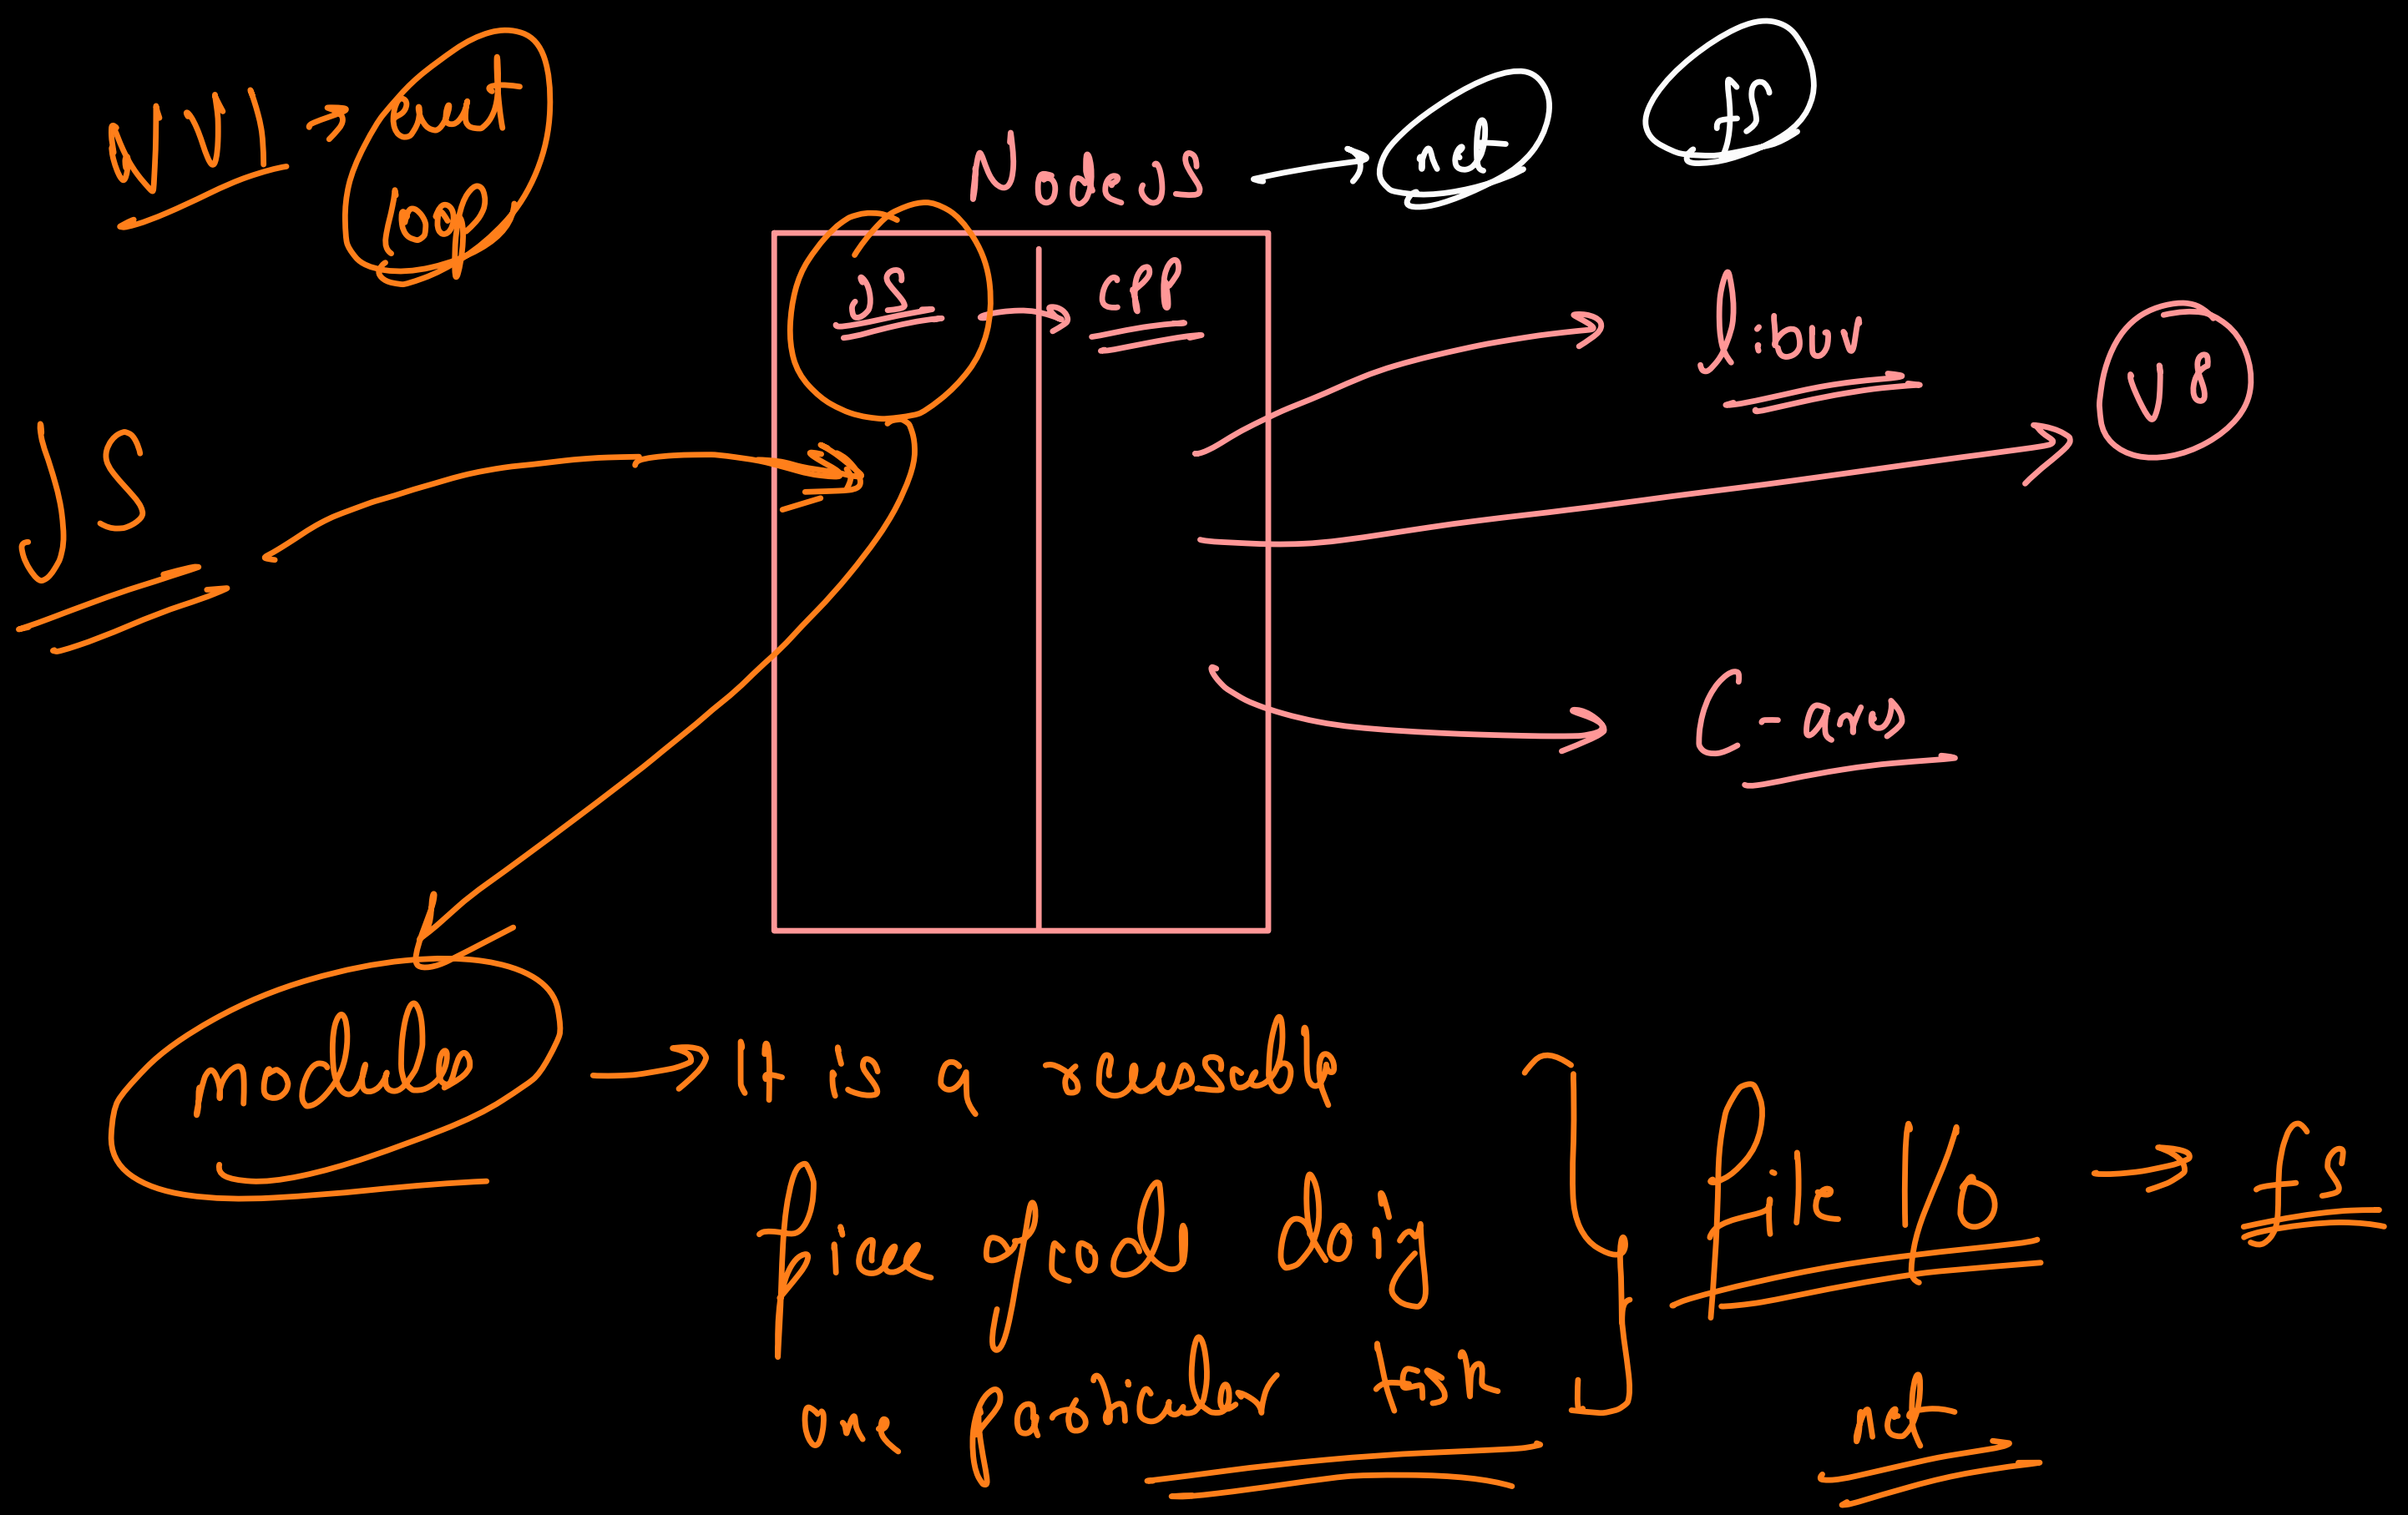 VVI → event
loop
NodeJS → net
fs
JS → CPP
libuv
V8
JS
C-ares
module → It is a reusable
piece of code doing
one particular task
file I/O → fs
net